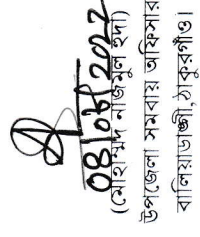 08/05/2022
(মোহাম্মদ নাজমুল হুদা)
উপজেলা সমবায় অফিসার
বালিয়াডাঙ্গী, ঠাকুরগাঁও।